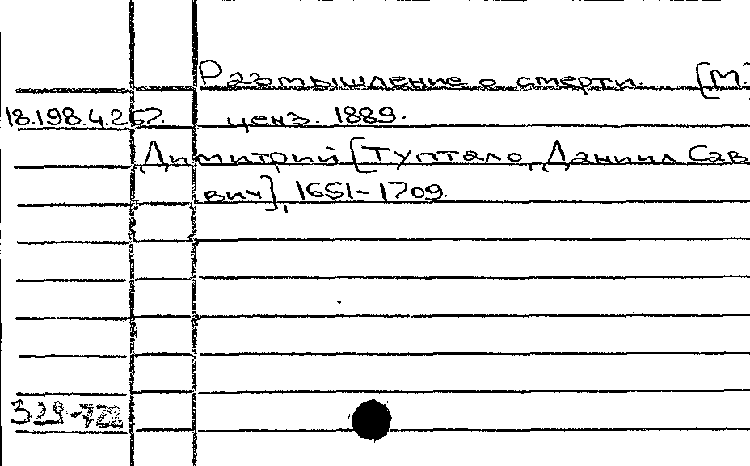 Размышление о смерти. [М.]
18.198.4.267. ценз. 1889.
Димитрий [Туптало, Даниил Сав
вич], 1651-1709.